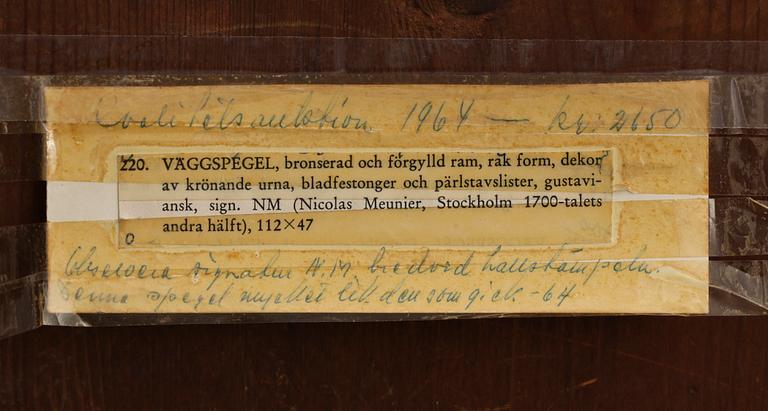 Kvalitétsauktion 1964 — kr: 2650
220. VÄGGSPEGEL, bronserad och förgylld ram, rak form, dekor
av krönande urna, bladfestonger och pärlstavslister, gustavi-
ansk, sign. NM (Nicolas Meunier, Stockholm 1700-talets
andra hälft), 112×47
O
Observera signatur N.M. bredvid hallstämpeln.
Denna spegel mycket lik den som gick -64